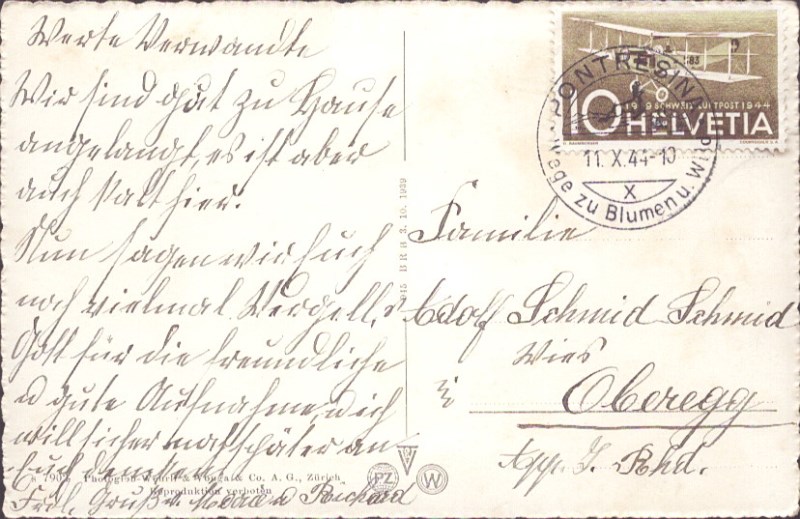 Werte Verwandte
Wir sind gut zu Hause
angelangt, es ist aber
auch kalt hier.
Nun sagen wir Euch
noch vielmal Vergelt's
Gott für die freundliche
u gute Aufnahme, u ich
will sicher noch später an
Euch denken
Frdl. Gruss v. u Reichard
7905 Photogr. Wehrli & Vouga & Co. A. G., Zürich
Reproduktion verboten
PZ
W
BRB 3. 10. 1939
PONTRESINA
11.X.44-10
X
Wege zu Blumen u. Wild
1919 SCHWEIZ. LUFTPOST 1944
10 HELVETIA
Familie
Adolf Schmid Schmid
Wies
Oberegg
App. I. Rhd.